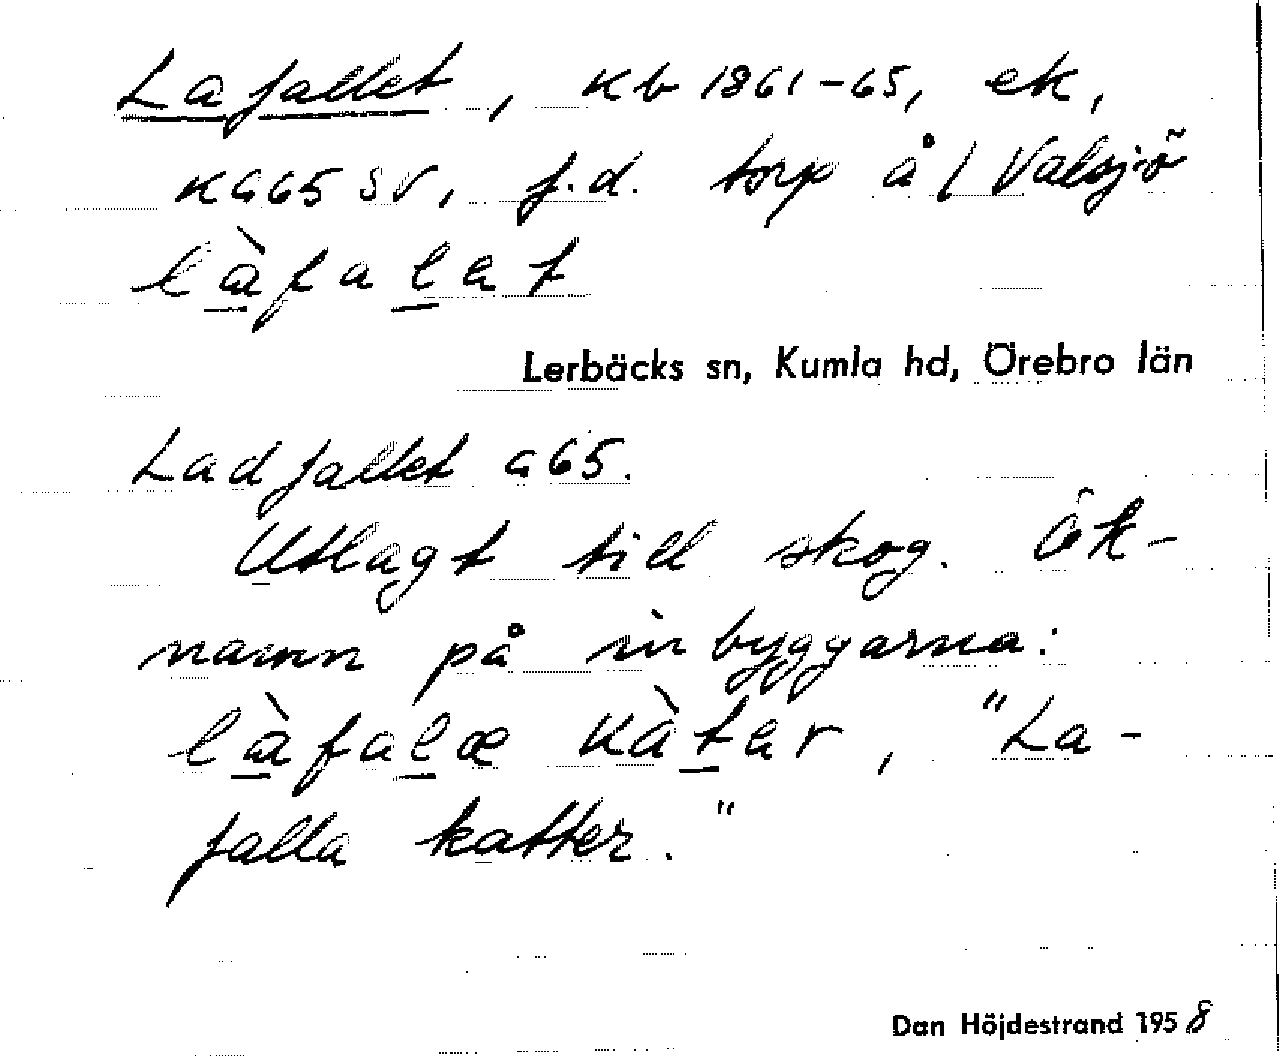 Lafallet, Kb 1861-65, ek,
KG65 SV, f.d. torp å / Valsjö
làfalat
Lerbäcks sn, Kumla hd, Örebro län
Ladfallet G65.
Utlagt till skog. Ök-
namn på inbyggarna:
làfalæ kàtar, "La-
falla katter."
Dan Höjdestrand 1958